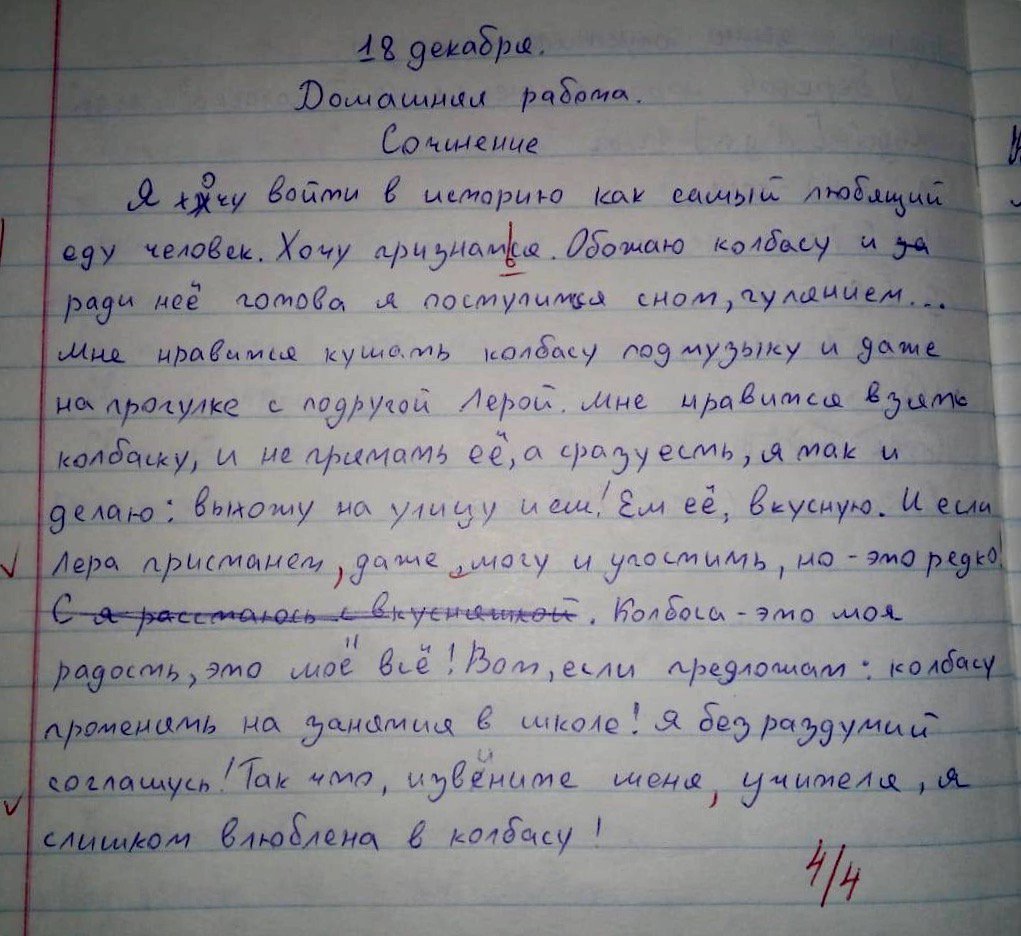 18 декабря.
Домашняя работа.
Сочинение
Я хочу войти в историю как самый любящий
еду человек. Хочу признаться. Обожаю колбасу и за
ради неё готова я поступится сном, гулянием...
Мне нравится кушать колбасу под музыку и даже
на прогулке с подругой Лерой. Мне нравится взять
колбаску, и не примать её, а сразу есть, я так и
делаю: выхожу на улицу и ем! Ем её, вкусную. И если
Лера пристанет, даже, могу и угостить, но - это редко!
С я расстаюсь с вкусняшкой. Колбаса - это моя
радость, это моё всё! Вот, если предложат: колбасу
променять на занятия в школе! Я без раздумий
соглашусь! Так что, извените меня, учителя, я
слишком влюблена в колбасу!
4/4